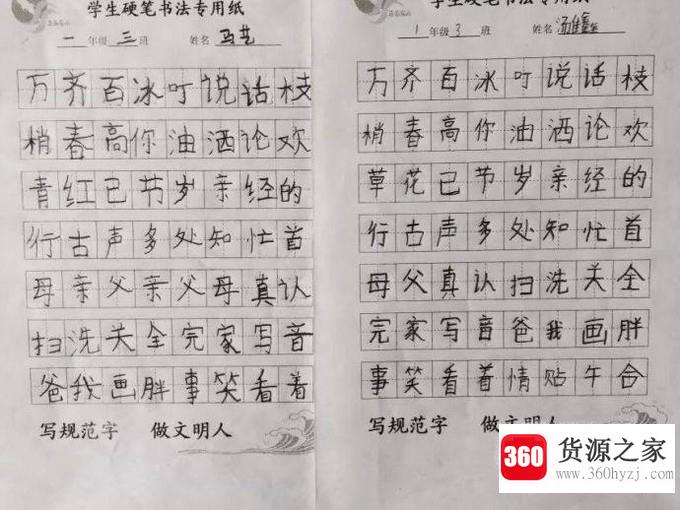 学生硬笔书法专用纸
一年级三班 姓名马艺
万齐百冰叮说话枝
梢春高你油洒论欢
青红已节岁亲经的
行古声多处知忙首
母亲父亲父母真认
扫洗关全完家写音
爸我画胖事笑看着
写规范字 做文明人
学生硬笔书法专用纸
1年级3班 姓名
万齐百冰叮说话枝
梢春高你油洒论欢
草花已节岁亲经的
行古声多处知忙首
母父真认扫洗关全
完家写音爸我画胖
事笑看着情贴午合
写规范字
360 货源之家
www.360hyzj.com